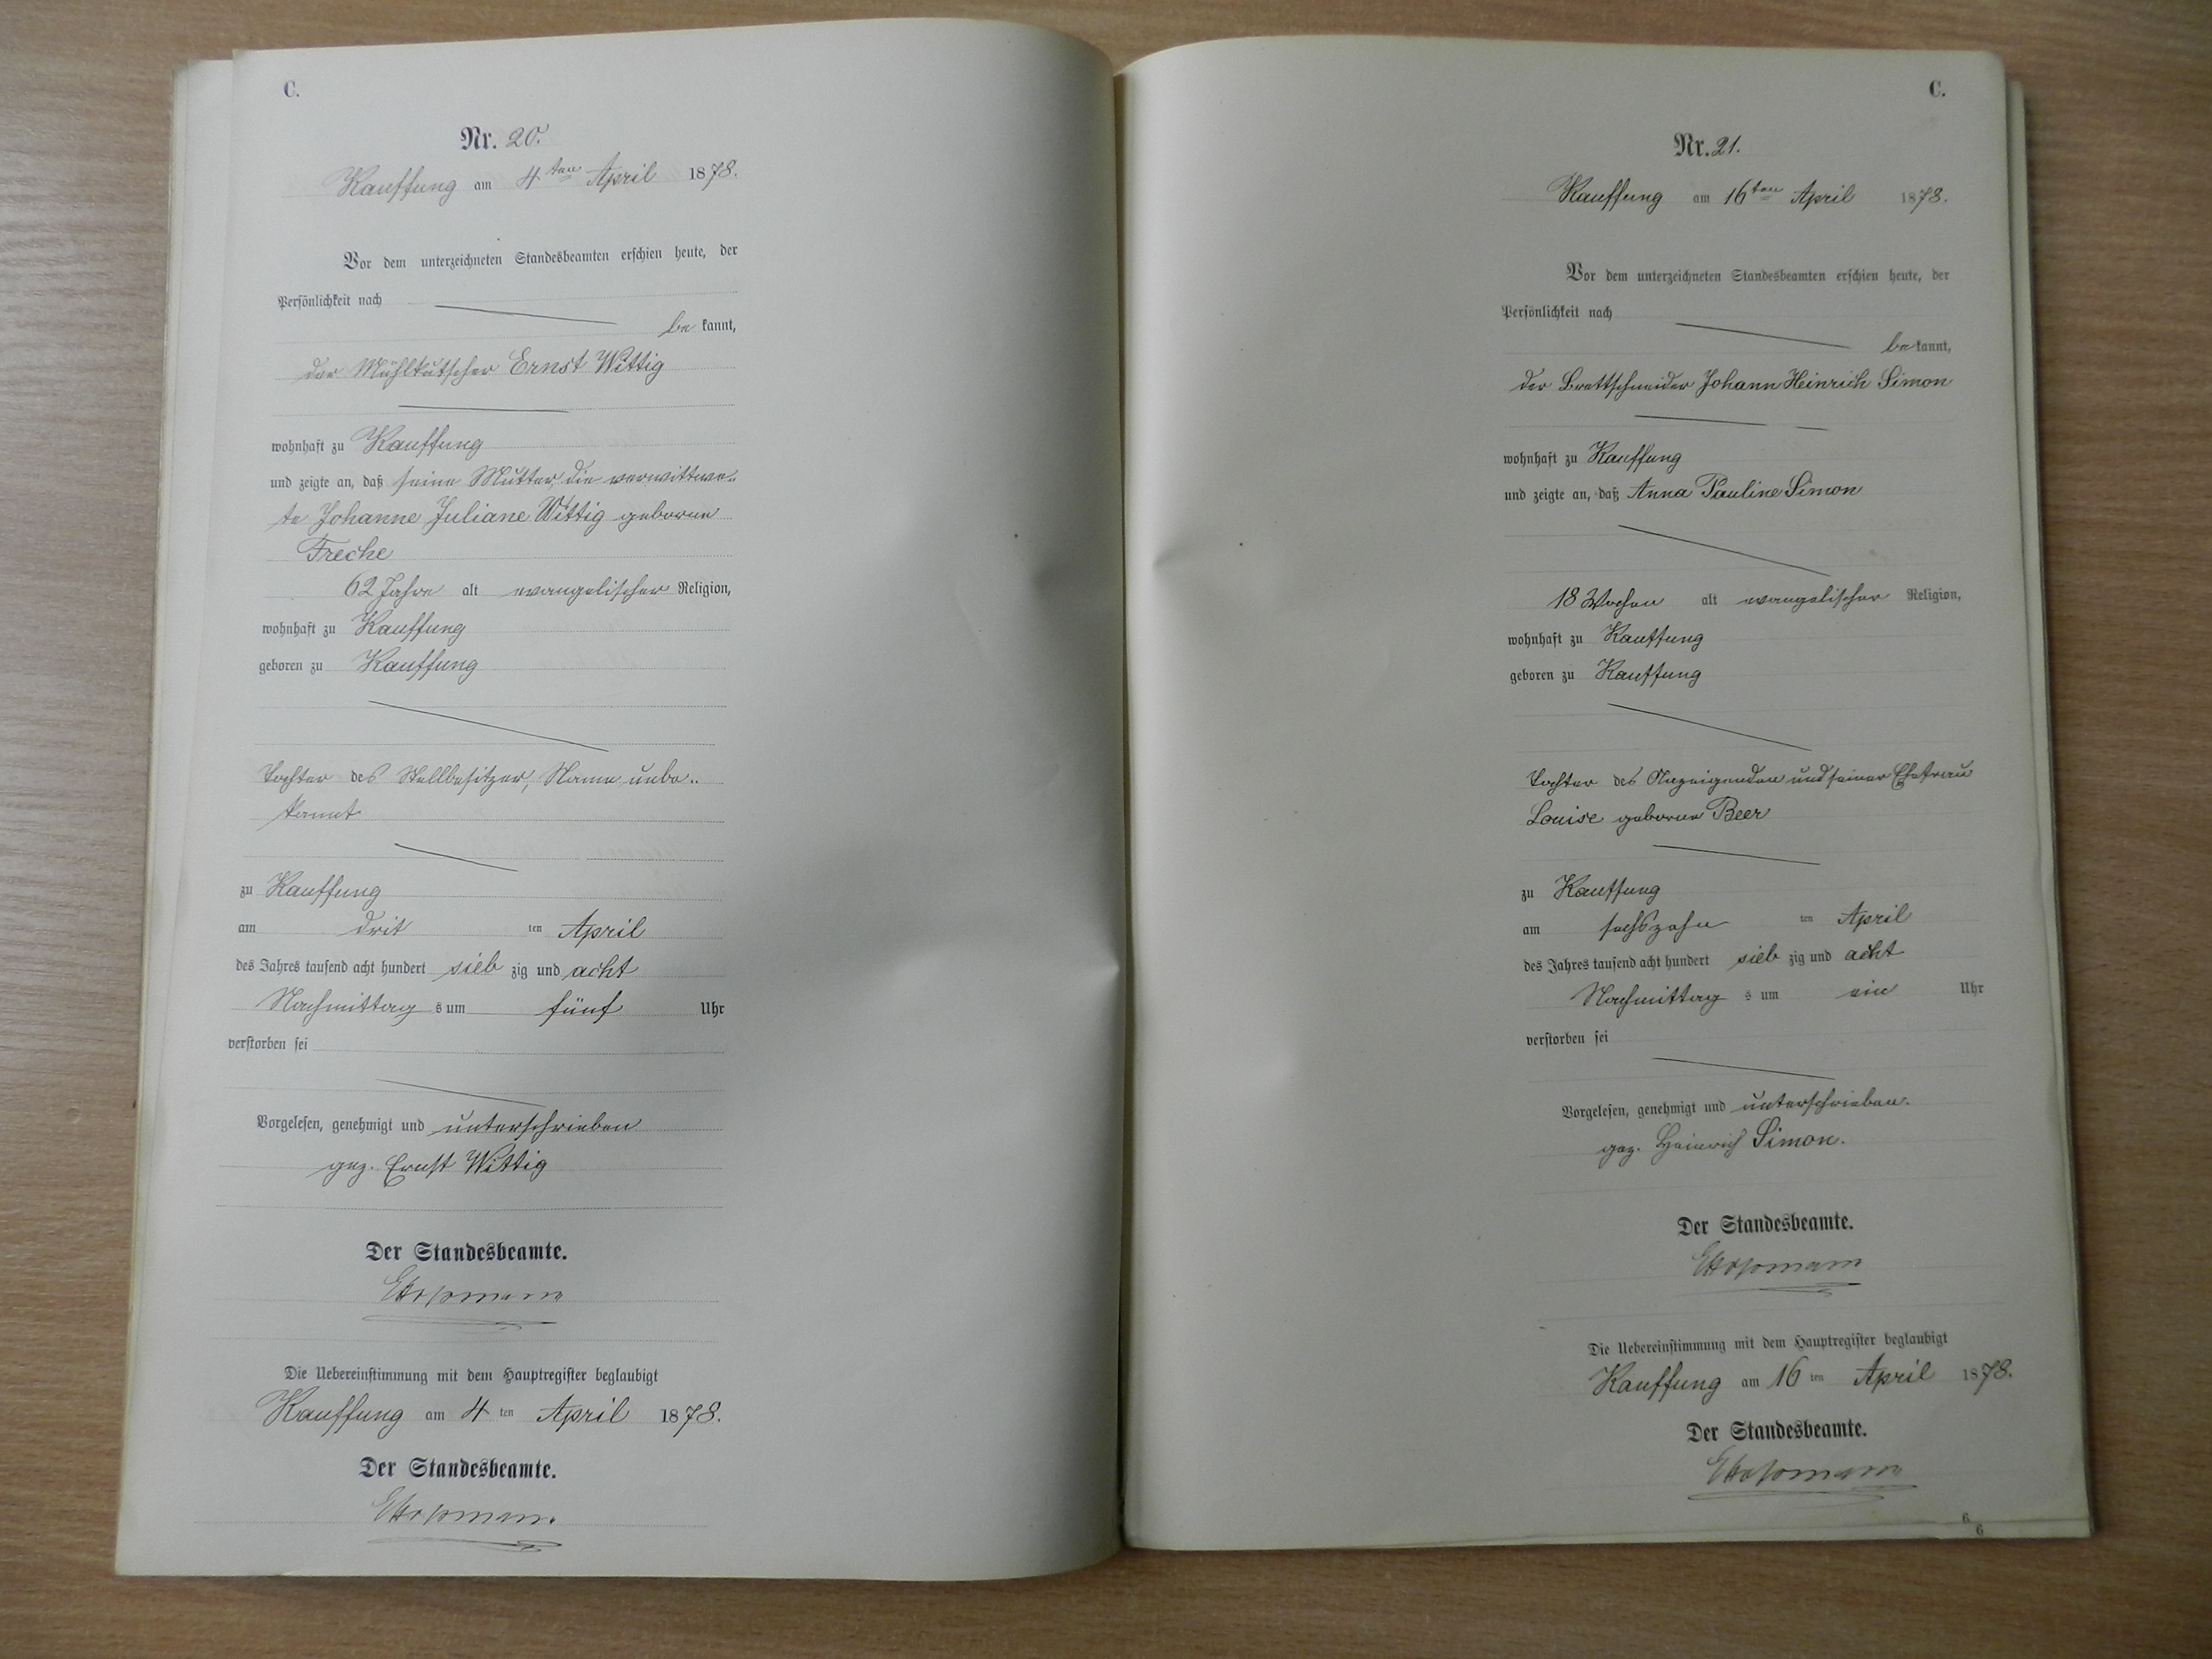 C.
Nr. 20.
Kauffung am 4ten April 1878.
Vor dem unterzeichneten Standesbeamten erschien heute, der
Persönlichkeit nach
be kannt,
der Mühlkutscher Ernst Wittig
wohnhaft zu Kauffung
und zeigte an, daß seine Mutter, die verwittwe-
te Johanne Juliane Wittig geborne
Freche
62 Jahre alt evangelischer Religion,
wohnhaft zu Kauffung
geboren zu Kauffung
Tochter des Stellbesitzer, Name unbe-
kannt
zu Kauffung
am drit ten April
des Jahres tausend acht hundert sieb zig und acht
Nachmittag s um fünf Uhr
verstorben sei
Vorgelesen, genehmigt und unterschrieben
gez. Ernst Wittig
Der Standesbeamte.
Die Uebereinstimmung mit dem Hauptregister beglaubigt
Kauffung am 4 ten April 1878.
Der Standesbeamte.
C.
Nr. 21.
Kauffung am 16ten April 1878.
Vor dem unterzeichneten Standesbeamten erschien heute, der
Persönlichkeit nach
be kannt,
der Brettschneider Johann Heinrich Simon
wohnhaft zu Kauffung
und zeigte an, daß Anna Pauline Simon
18 Wochen alt evangelischer Religion,
wohnhaft zu Kauffung
geboren zu Kauffung
Tochter des Anzeigenden und seiner Ehefrau
Louise geborne Beer
zu Kauffung
am sechszehn ten April
des Jahres tausend acht hundert sieb zig und acht
Nachmittag s um ein Uhr
verstorben sei
Vorgelesen, genehmigt und unterschrieben.
gez. Heinrich Simon.
Der Standesbeamte.
Die Uebereinstimmung mit dem Hauptregister beglaubigt
Kauffung am 16 ten April 1878.
Der Standesbeamte.
6
6